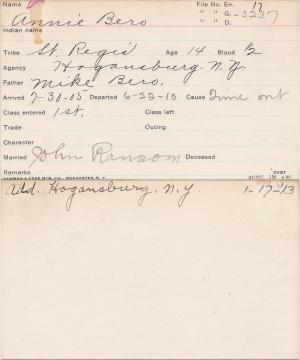 Name File No. En. 17
Annie Bero " " G. -3237
Indian name " " D.
Tribe St. Regis Age 14 Blood 1/2
Agency Hogansburg, N.Y.
Father Mike Bero.
Arrived 7-30-05 Departed 6-22-10 Cause Time out
Class entered 1st. Class left
Trade Outing
Character
Married John Ransom Deceased
Remarks over
Add. Hogansburg, N.Y. 1-17-13